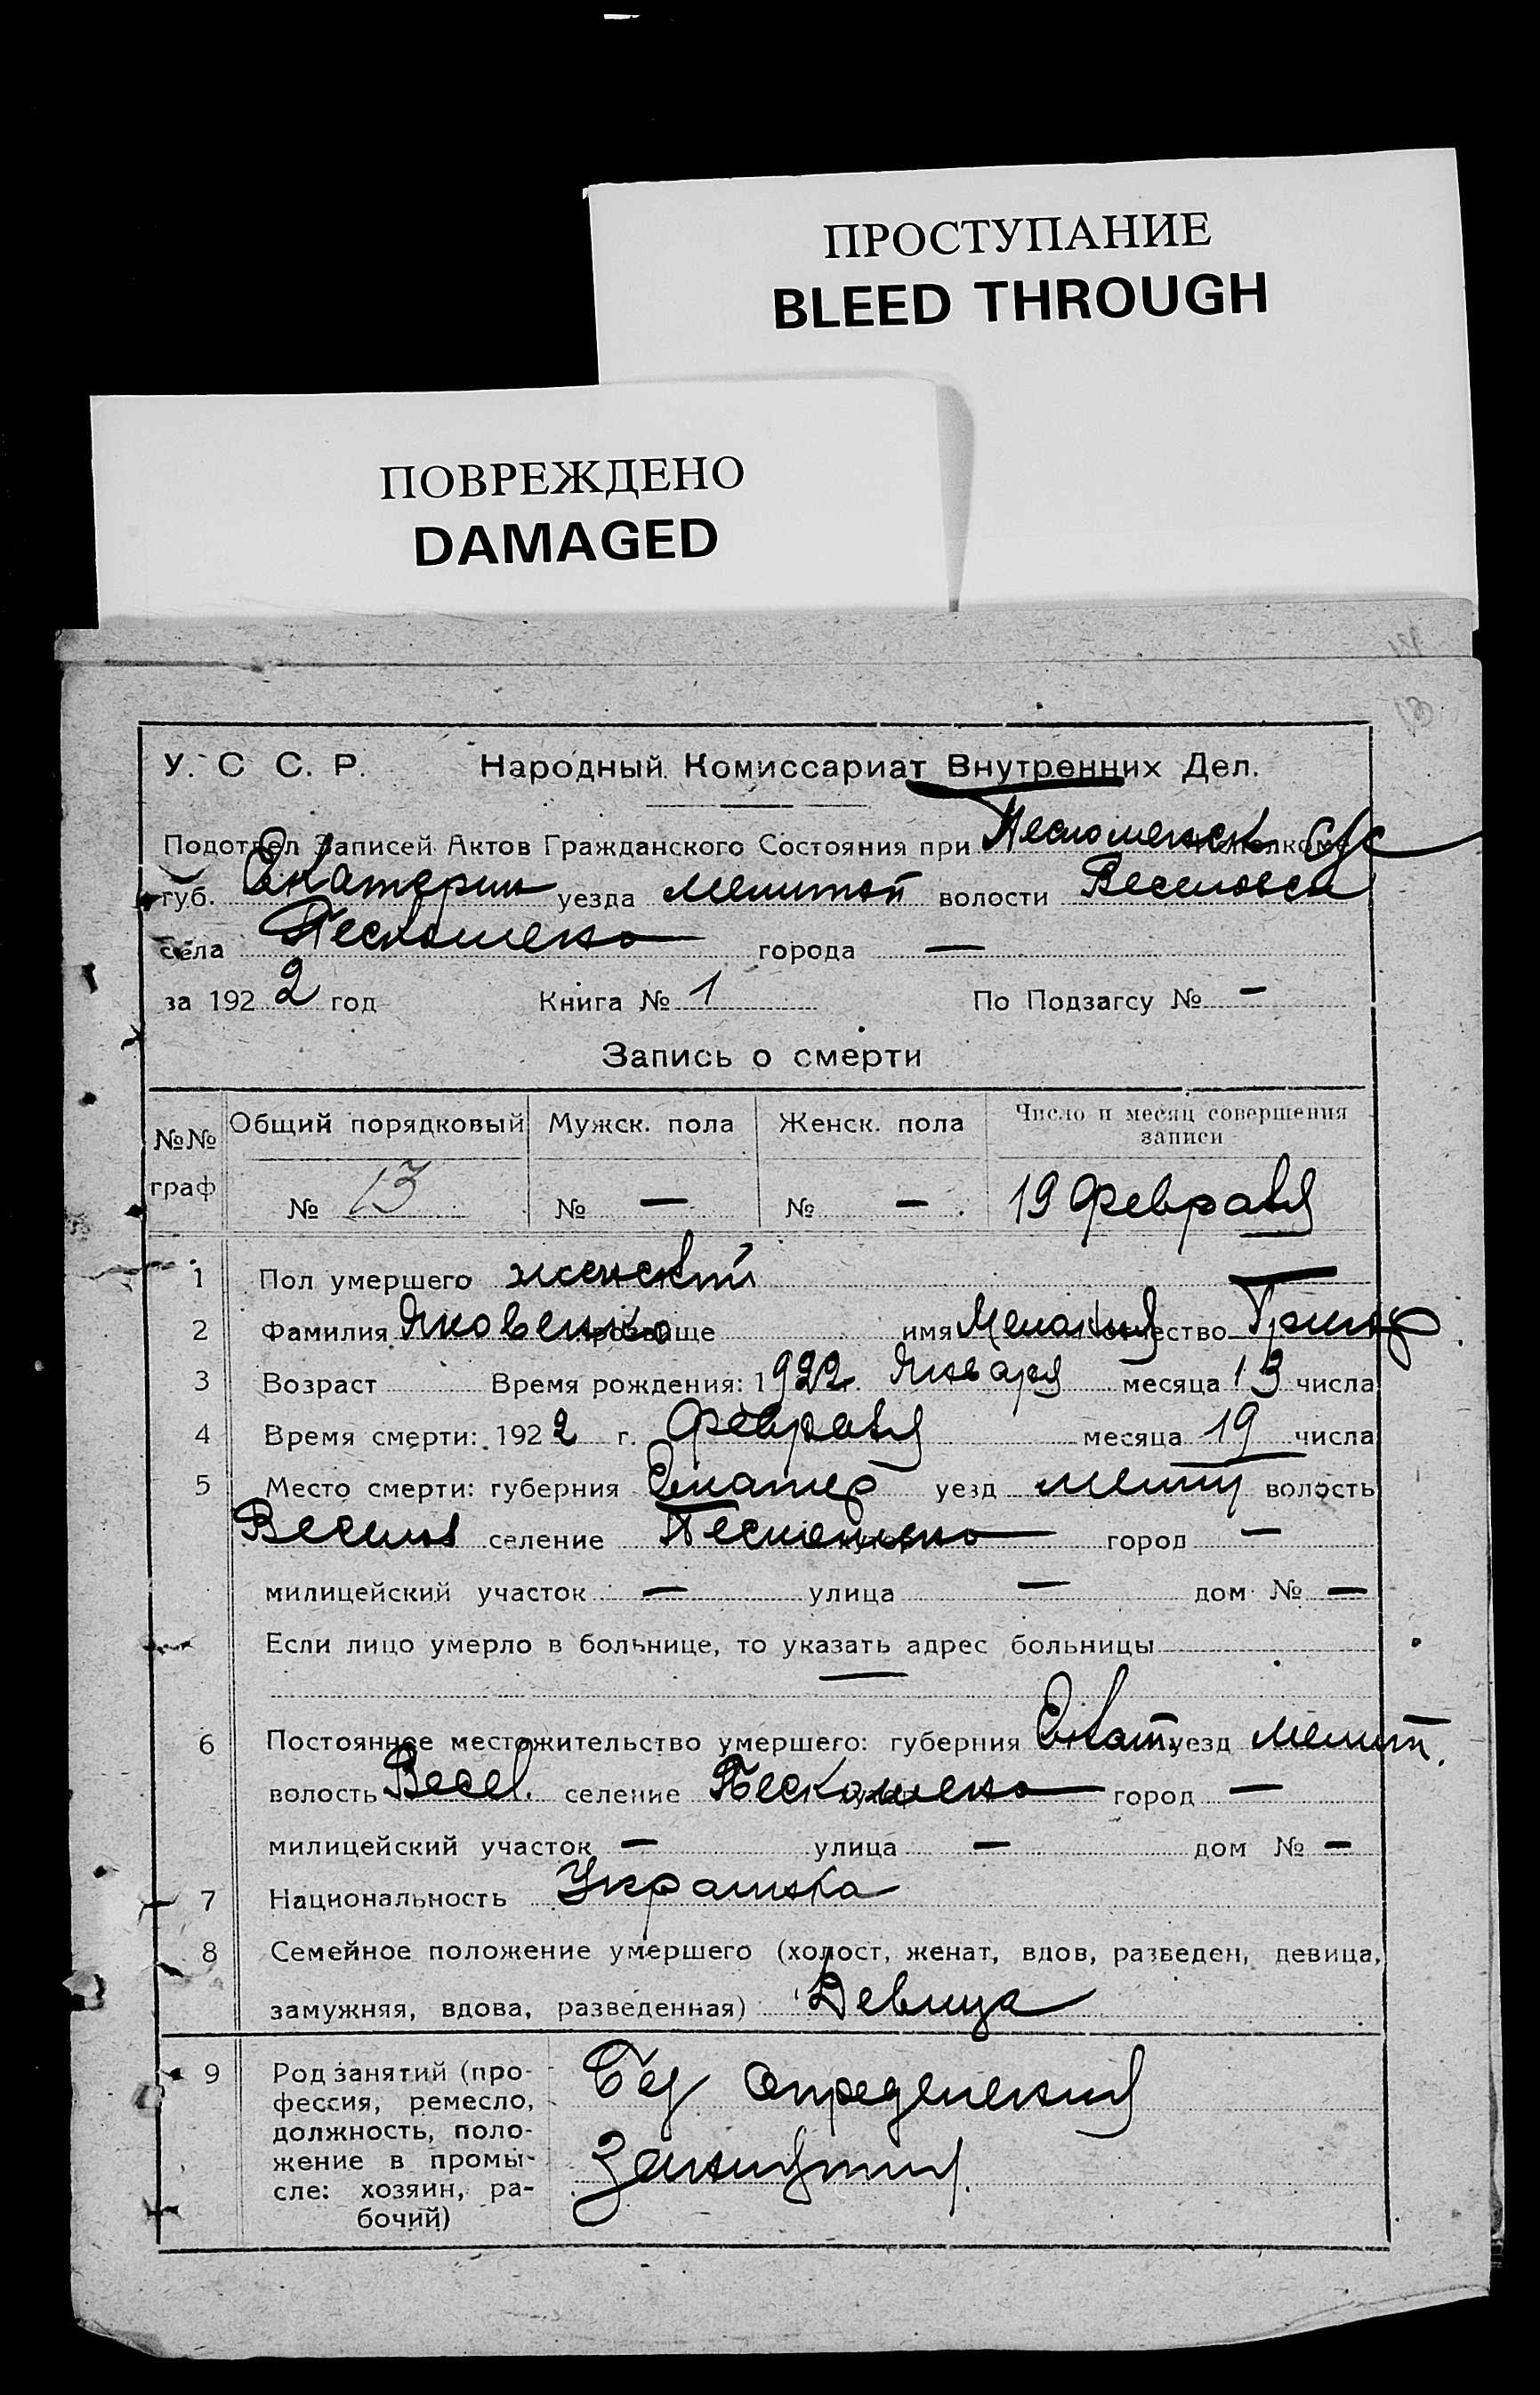 ПРОСТУПАНИЕ
BLEED THROUGH
ПОВРЕЖДЕНО
DAMAGED
У. С С. Р. Народный Комиссариат Внутренних Дел.
Подотдел Записей Актов Гражданского Состояния при
губ. Екатерин уезда мелитоп волости Веселовск
села города —
за 192 2 год Книга № 1 По Подзагсу № —
Запись о смерти
№№ граф
Общий порядковый Мужск. пола Женск. пола Число и месяц совершения записи
№ 13 № — № — 19 февраля
1 Пол умершего женский
2 Фамилия Яковенко прозвище имя Мелания отчество Григор
3 Возраст Время рождения: 1922 г. Января месяца 13 числа
4 Время смерти: 192 2 г. февраля месяца 19 числа
5 Место смерти: губерния Екатер уезд мелит волость
Весел селение город —
милицейский участок — улица — дом № —
Если лицо умерло в больнице, то указать адрес больницы
—
6 Постоянное местожительство умершего: губерния Екат. уезд мелит.
волость Весел. селение город —
милицейский участок — улица — дом № —
7 Национальность Украинка
8 Семейное положение умершего (холост, женат, вдов, разведен, девица,
замужняя, вдова, разведенная) Девица
9 Род занятий (про-
фессия, ремесло,
должность, поло-
жение в промы-
сле: хозяин, ра-
бочий)
Без определения